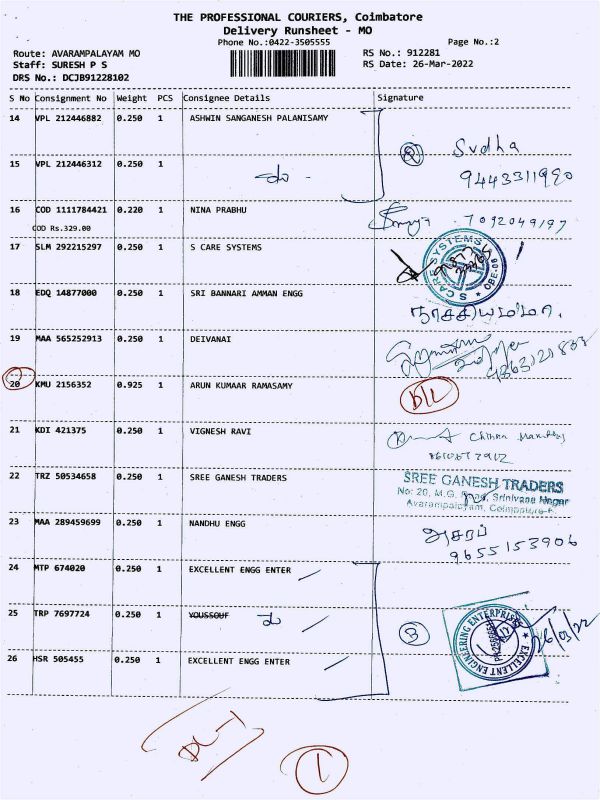 THE PROFESSIONAL COURIERS, Coimbatore
Delivery Runsheet - MO
Phone No.:0422-3505555
Page No.:2
Route: AVARAMPALAYAM MO
RS No.: 912281
Staff: SURESH P S
RS Date: 26-Mar-2022
DRS No.: DCJB91228102
S No Consignment No Weight PCS Consignee Details Signature
14 VPL 212446882 0.250 1 ASHWIN SANGANESH PALANISAMY
② Sudha
15 VPL 212446312 0.250 1
9443311990
16 COD 1111784421 0.220 1 NINA PRABHU 7092049197
COD Rs.329.00
17 SLM 292215297 0.250 1 S CARE SYSTEMS
S CARE SYSTEMS
18 EDQ 14877000 0.250 1 SRI BANNARI AMMAN ENGG
நாச்சியம்மா.
19 MAA 565252913 0.250 1 DEIVANAI
20 KMU 2156352 0.925 1 ARUN KUMAAR RAMASAMY
D/L
21 KDI 421375 0.250 1 VIGNESH RAVI
22 TRZ 50534658 0.250 1 SREE GANESH TRADERS
SREE GANESH TRADERS
No: 20, M.G. Road, Srinivasa Nagar
Avarampalayam, Coimbatore-6.
23 MAA 289459699 0.250 1 NANDHU ENGG
அசரப்
9655153906
24 MTP 674020 0.250 1 EXCELLENT ENGG ENTER
25 TRP 7697724 0.250 1 YOUSSOUF
③
EXCELLENT ENGINEERING ENTERPRISES
26/03/22
26 HSR 505455 0.250 1 EXCELLENT ENGG ENTER
①